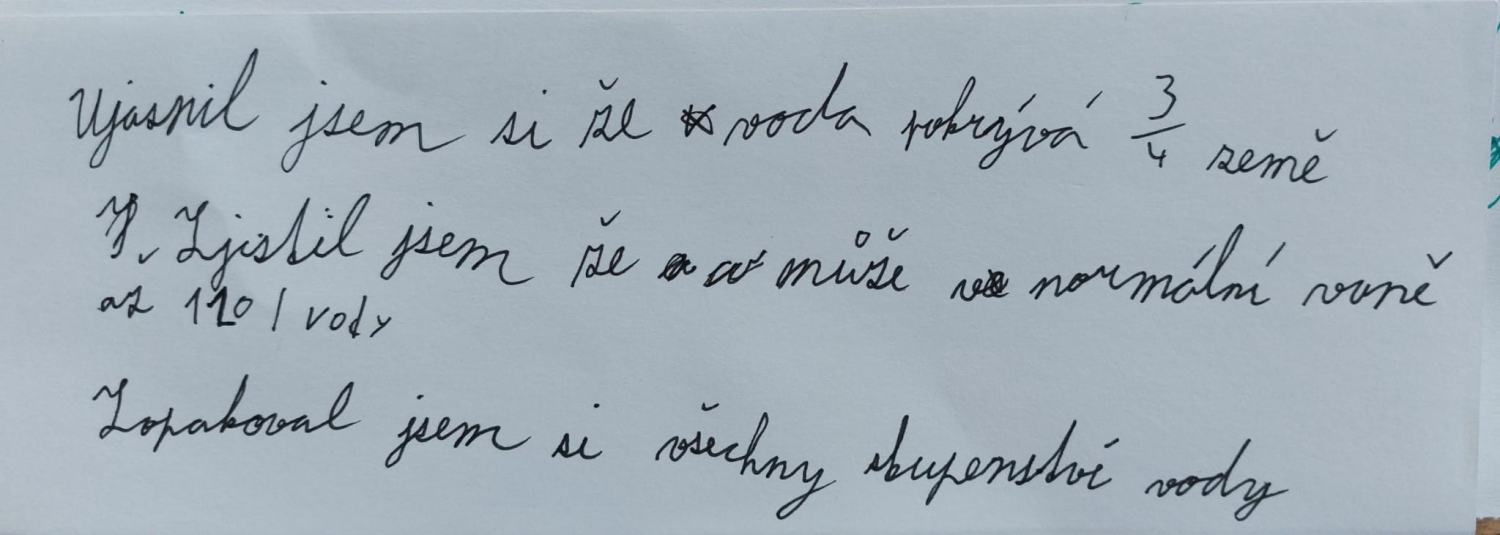 Ujasnil jsem si že voda pokrývá 3/4 země
Zjistil jsem že může normální vaně
až 120 l vody
Zopakoval jsem si všechny skupenství vody